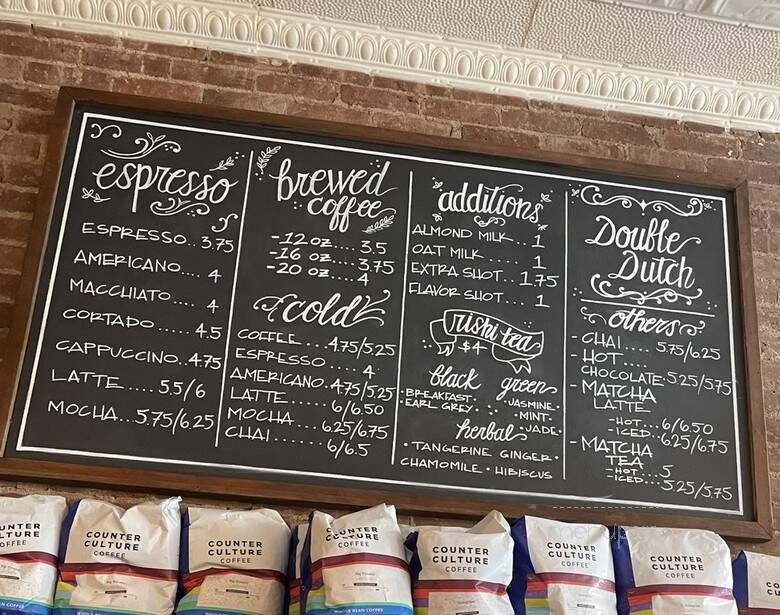 espresso
ESPRESSO..3.75
AMERICANO.... 4
MACCHIATO.... 4
CORTADO..... 4.5
CAPPUCCINO..4.75
LATTE.... 5.5/6
MOCHA...5.75/6.25
brewed
coffee
-12 oz.... 3.5
-16 oz.... 3.75
-20 oz.... 4
cold
COFFEE....4.75/5.25
ESPRESSO .... 4
AMERICANO.4.75/5.25
LATTE....... 6/6.50
MOCHA... 6.25/6.75
CHAI....... 6/6.5
additions
ALMOND MILK... 1
OAT MILK..... 1
EXTRA SHOT... 1.75
FLAVOR SHOT.... 1
rishi tea
$4
black
BREAKFAST
EARL GREY
green
JASMINE
MINT
JADE
herbal
• TANGERINE GINGER •
CHAMOMILE • HIBISCUS
Double
Dutch
others
- CHAI.... 5.75/6.25
- HOT....
CHOCOLATE.5.25/5.75
- MATCHA
LATTE
-HOT...6/6.50
-ICED..6.25/6.75
- MATCHA
TEA
-HOT...5
-ICED...5.25/5.75
COUNTER
CULTURE
COFFEE
COUNTER
CULTURE
COFFEE
COUNTER
CULTURE
COFFEE
COUNTER
CULTURE
COFFEE
COUNTER
CULTURE
COFFEE
COUNTER
CULTURE
COFFEE
COUNTER
CULTURE
COFFEE